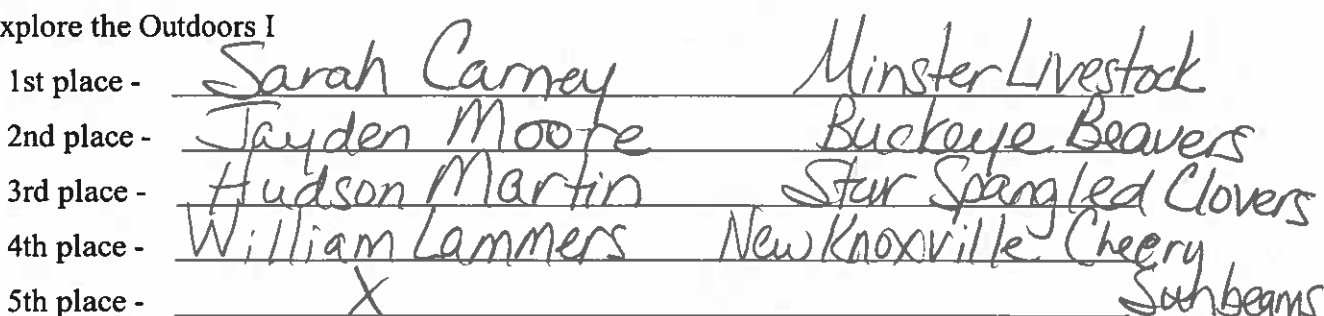 xplore the Outdoors I
1st place - Sarah Carney Minster Livestock
2nd place - Jayden Moore Buckeye Beavers
3rd place - Hudson Martin Star Spangled Clovers
4th place - William Lammers New Knoxville Cheery
5th place - X Sunbeams